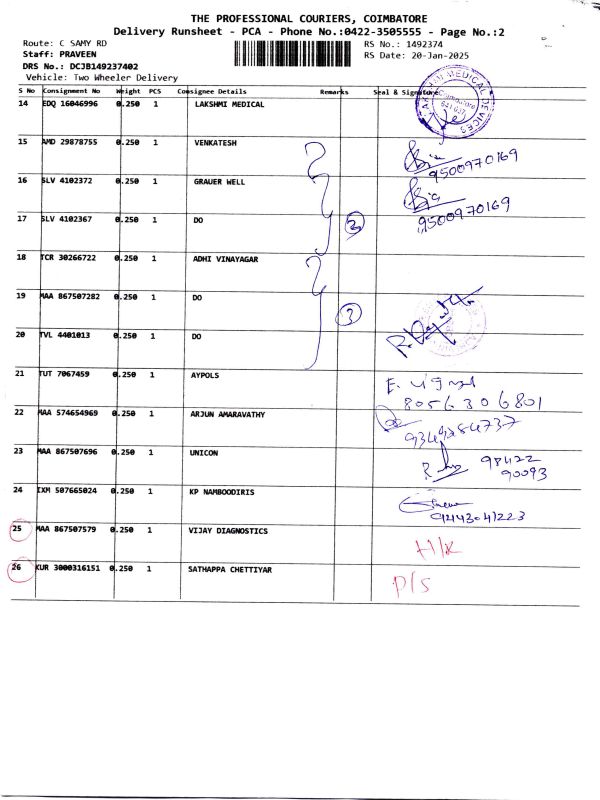 THE PROFESSIONAL COURIERS, COIMBATORE
Delivery Runsheet - PCA - Phone No.:0422-3505555 - Page No.:2
Route: C SAMY RD
RS No.: 1492374
Staff: PRAVEEN
RS Date: 20-Jan-2025
DRS No.: DCJB149237402
Vehicle: Two Wheeler Delivery
S No Consignment No Weight PCS Consignee Details Remarks Seal & Signature
14 EDQ 16046996 0.250 1 LAKSHMI MEDICAL
MEDICAL DEVICES
Coimbatore
641 037
15 AMD 29878755 0.250 1 VENKATESH
9500970169
16 SLV 4102372 0.250 1 GRAUER WELL
9500970169
17 SLV 4102367 0.250 1 DO
18 TCR 30266722 0.250 1 ADHI VINAYAGAR
19 MAA 867507282 0.250 1 DO
20 TVL 4401013 0.250 1 DO
21 TUT 7067459 0.250 1 AYPOLS
8056306801
22 MAA 574654969 0.250 1 ARJUN AMARAVATHY
23 MAA 867507696 0.250 1 UNICON
98422
90093
24 IXM 507665024 0.250 1 KP NAMBOODIRIS
9443041223
25 MAA 867507579 0.250 1 VIJAY DIAGNOSTICS
26 KUR 3000316151 0.250 1 SATHAPPA CHETTIYAR
P/S